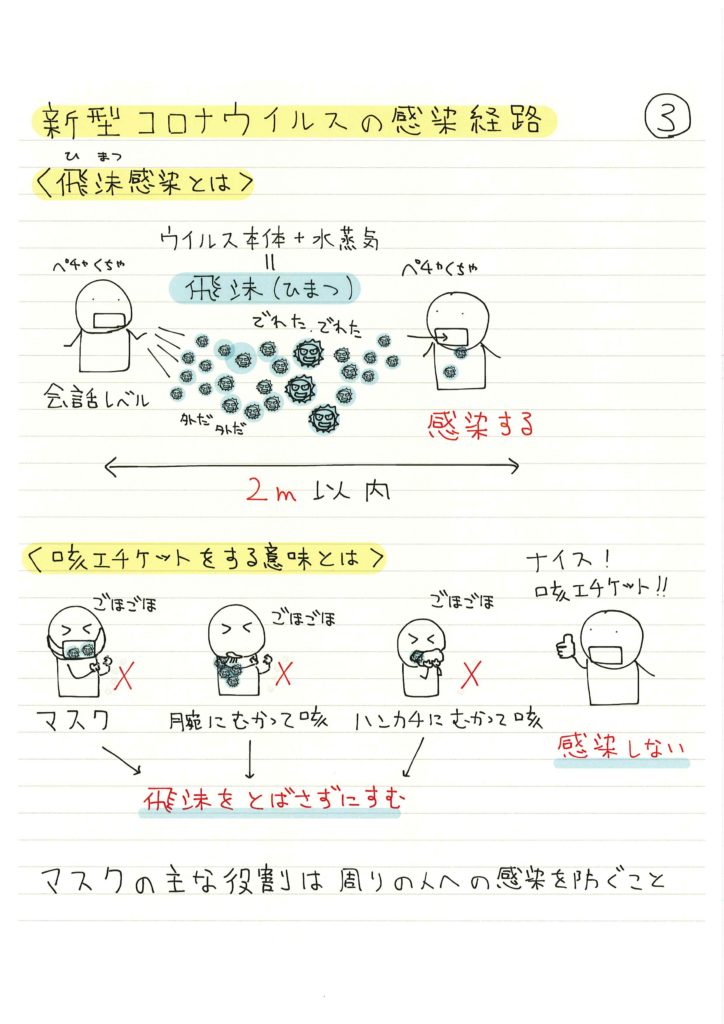 新型コロナウイルスの感染経路
③
ひまつ
<飛沫感染とは>
ウイルス本体+水蒸気
=
飛沫(ひまつ)
ペチャくちゃ
ペチャくちゃ
でれた.でれた
会話レベル
外だ
外だ
感染する
2m以内
<咳エチケットをする意味とは>
ナイス!
咳エチケット!!
ごほごほ
ごほごほ
ごほごほ
×
×
×
マスク
腕にむかって咳
ハンカチにむかって咳
感染しない
飛沫をとばさずにすむ
マスクの主な役割は周りの人への感染を防ぐこと